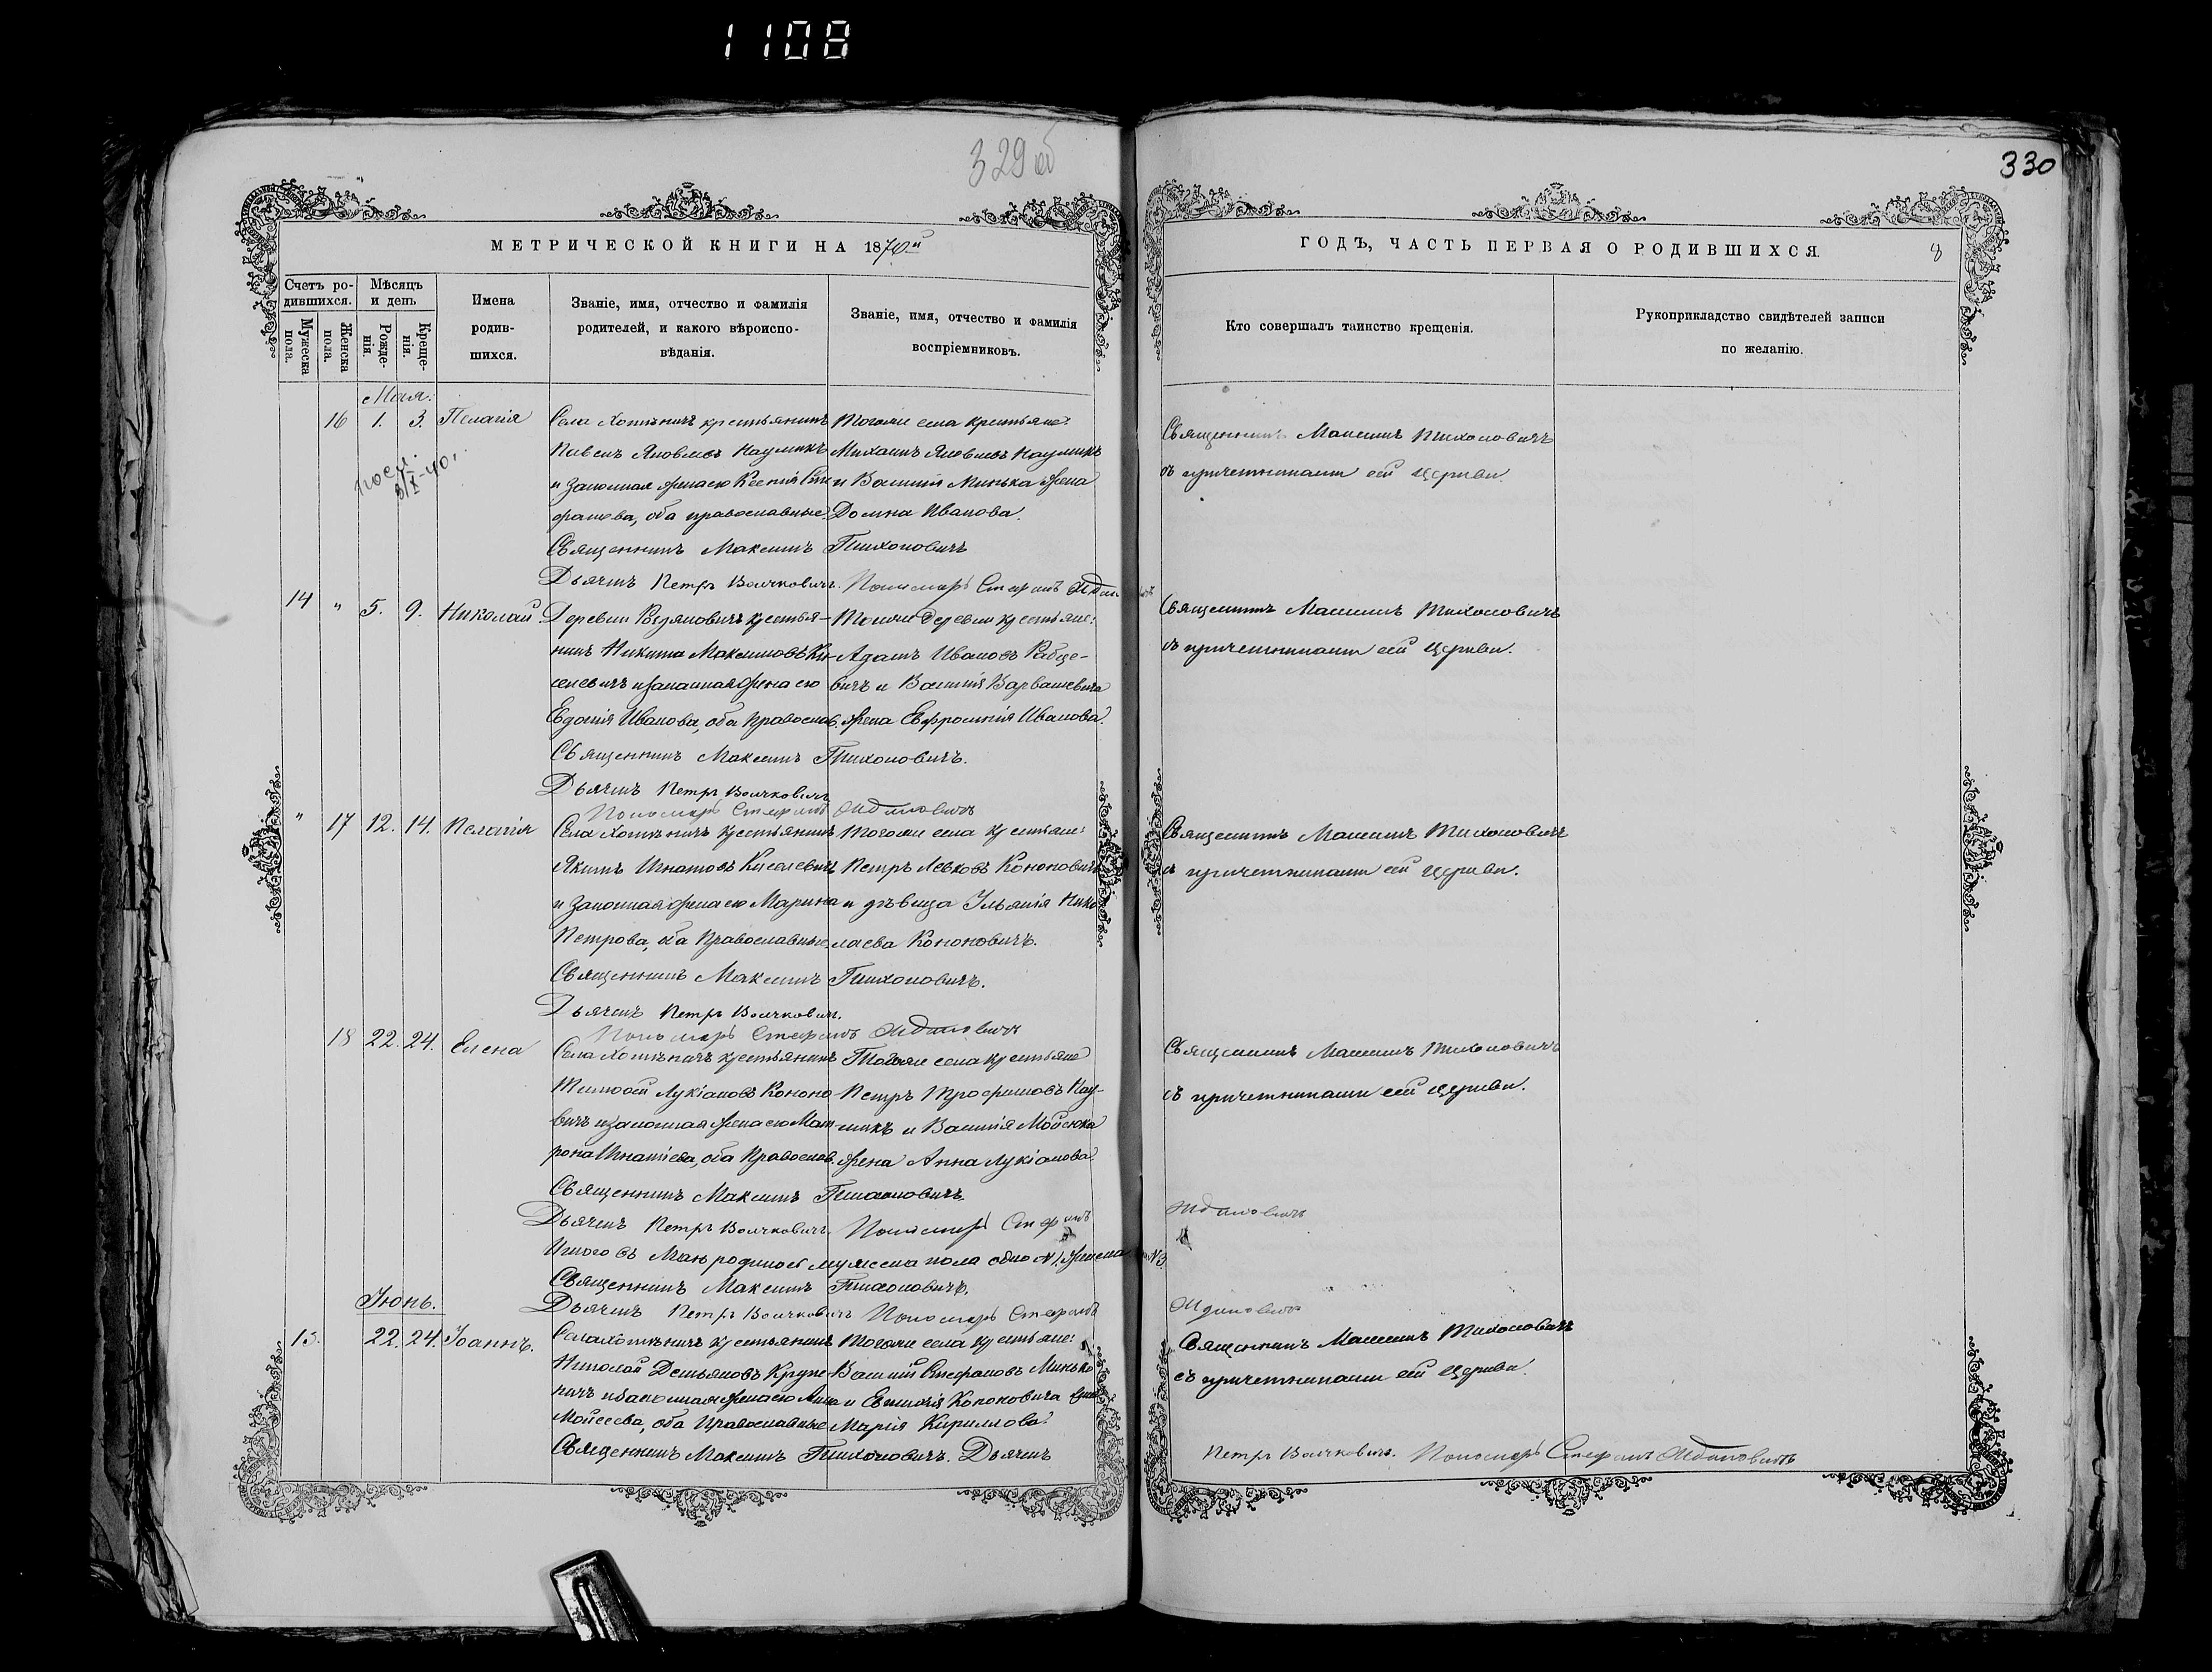 1108
329 об
330
МЕТРИЧЕСКОЙ КНИГИ НА 1870й
ГОДЪ, ЧАСТЬ ПЕРВАЯ О РОДИВШИХСЯ.
8
Счетъ ро-
дившихся.
Мѣсяцъ
и день
Мужеска
пола.
Женска
пола.
Рожде-
нія.
Креще-
нія.
Имена
родив-
шихся.
Званіе, имя, отчество и фамилія
родителей, и какого вѣроиспо-
вѣданія.
Званіе, имя, отчество и фамилія
воспріемниковъ.
Кто совершалъ таинство крещенія.
Рукоприкладство свидѣтелей записи
по желанію.
Мая.
16 1. 3. Пелагія
Села Хотыничъ крестьянинъ
Павелъ Яковлевъ Наумикъ
и законная жена его Ксенія Сте
фанова, оба православные.
Тогоже села крестьяне:
Михаилъ Яковлевъ Наумикъ
и Василія Минька жена
Домна Иванова.
Священникъ Максимъ Тихоновичъ
съ причетниками сей Церкви.
Священникъ Максимъ Тихоновичъ
Дьячекъ Петръ Волчковичъ. Пономарь Стефанъ
14 " 5. 9. Николай.
крестья-
нинъ Никита Максимовъ Ки-
селевичъ и законная жена его
Иванова, оба Православ.
Тойже деревни крестьяне:
Адамъ Ивановъ Рабце-
вичъ и Василія Варвашевича
жена Евфросинія Иванова.
Священникъ Максимъ Тихоновичъ
съ причетниками сей Церкви.
Священникъ Максимъ Тихоновичъ.
Дьячекъ Петръ Волчковичъ
Пономарь Стефанъ Ждановичъ
" 17 12. 14. Пелагія
Села Хотыничъ крестьянинъ
Якимъ Игнатовъ Киселевичъ
и законная жена его Марина
Петрова, оба Православные.
Тогоже села крестьяне:
Петръ Левковъ Кононовичъ
и дѣвица Ульянія Нико
лаева Кононовичъ.
Священникъ Максимъ Тихоновичъ
съ причетниками сей Церкви.
Священникъ Максимъ Тихоновичъ.
Дьячекъ Петръ Волчкович.
Пономарь Стефанъ Ждановичъ
18 22. 24. Елена
Села Хотыничъ крестьянинъ
Тимофей Лукіановъ Кононо
вичъ и законная жена его Мат
рона Игнатіева, оба Православ.
Тогоже села крестьяне
Петръ Трофимовъ Нау-
микъ и Василія Мойсюка
жена Анна Лукіанова.
Священникъ Максимъ Тихоновичъ
съ причетниками сей Церкви.
Священникъ Максимъ Тихоновичъ.
Дьячекъ Петръ Волчковичъ. Пономарь Стефанъ
Ждановичъ
Итого въ Маѣ родилось мужеска пола одно №1, женска №3
Священникъ Максимъ Тихоновичъ.
Дьячекъ Петръ Волчковичъ Пономарь Стефанъ
Ждановичъ
Іюнь.
15. 22. 24. Іоаннъ.
Села Хотыничъ крестьянинъ
Николай Демьяновъ Крупе
ничъ и законная жена его Анна
Мойсеева, оба Православные
Тогоже села крестьяне:
Василій Стефановъ Минько
и Кононовича жена
Марія Кириллова.
Священникъ Максимъ Тихоновичъ
съ причетниками сей Церкви.
Священникъ Максимъ Тихоновичъ. Дьячекъ
Петръ Волчковичъ. Пономарь Стефанъ Ждановичъ